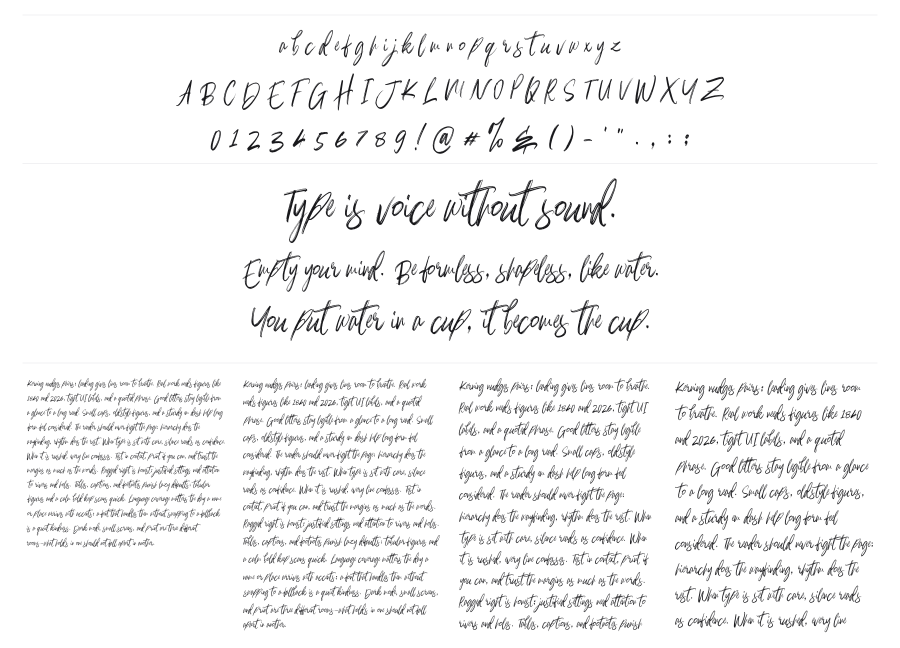 a b c d e f g h i j k l m n o p q r s t u v w x y z
A B C D E F G H I J K L M N O P Q R S T U V W X Y Z
0 1 2 3 4 5 6 7 8 9 ! @ # % & ( ) - ' " . , : ;
Type is voice without sound.
Empty your mind. Be formless, shapeless, like water.
You put water in a cup, it becomes the cup.
Kerning nudges pairs; leading gives lines room to breathe. Real work needs figures like
1860 and 2026, tight UI labels, and a quoted phrase. Good letters stay legible from
a glance to a long read. Small caps, oldstyle figures, and a sturdy en dash help long
form feel considered. The reader should never fight the page: hierarchy does the
wayfinding, rhythm does the rest. When type is set with care, silence reads as confidence.
When it is rushed, every line confesses. Test in context, print if you can, and trust the
margins as much as the words. Ragged right is honest; justified settings need attention
to rivers and holes. Tables, captions, and footnotes punish lazy defaults; tabular
figures and a calm bold keep scans quick. Language coverage matters the day a name
or place arrives with accents: a font that handles them without snapping to a fallback
is a quiet kindness. Dark mode, small screens, and print are three different
rooms—what holds in one should not fall apart in another.
Kerning nudges pairs; leading gives lines room to breathe. Real work
needs figures like 1860 and 2026, tight UI labels, and a quoted
phrase. Good letters stay legible from a glance to a long read. Small
caps, oldstyle figures, and a sturdy en dash help long form feel
considered. The reader should never fight the page: hierarchy does the
wayfinding, rhythm does the rest. When type is set with care, silence
reads as confidence. When it is rushed, every line confesses. Test in
context, print if you can, and trust the margins as much as the words.
Ragged right is honest; justified settings need attention to rivers and holes.
Tables, captions, and footnotes punish lazy defaults; tabular figures and
a calm bold keep scans quick. Language coverage matters the day a
name or place arrives with accents: a font that handles them without
snapping to a fallback is a quiet kindness. Dark mode, small screens,
and print are three different rooms—what holds in one should not fall
apart in another.
Kerning nudges pairs; leading gives lines room to breathe.
Real work needs figures like 1860 and 2026, tight UI
labels, and a quoted phrase. Good letters stay legible
from a glance to a long read. Small caps, oldstyle
figures, and a sturdy en dash help long form feel
considered. The reader should never fight the page:
hierarchy does the wayfinding, rhythm does the rest. When
type is set with care, silence reads as confidence. When
it is rushed, every line confesses. Test in context, print if
you can, and trust the margins as much as the words.
Ragged right is honest; justified settings need attention to
rivers and holes. Tables, captions, and footnotes punish
Kerning nudges pairs; leading gives lines room
to breathe. Real work needs figures like 1860
and 2026, tight UI labels, and a quoted
phrase. Good letters stay legible from a glance
to a long read. Small caps, oldstyle figures,
and a sturdy en dash help long form feel
considered. The reader should never fight the page:
hierarchy does the wayfinding, rhythm does the
rest. When type is set with care, silence reads
as confidence. When it is rushed, every line